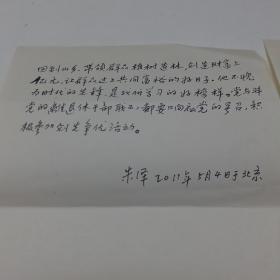 回到山乡，带领群众植树造林，创造财富上
亿元，让群众过上共同富裕的好日子。他不愧
为时代的先锋，是我们学习的好榜样。党与非
党的离退休干部职工，都要响应党的号召，积
极参加创先争优活动。
朱泽 2011年5月4日于北京